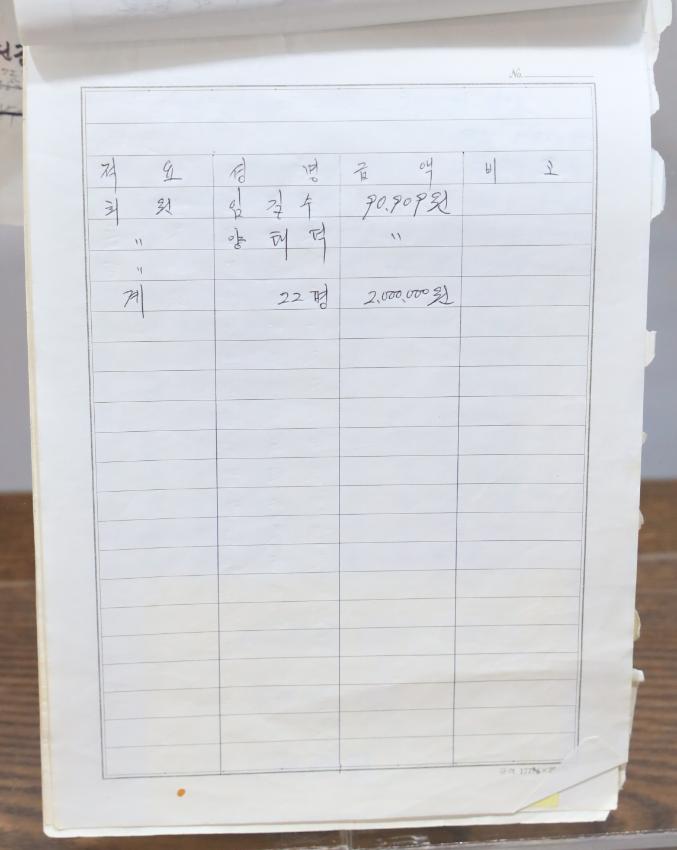 No.
적 요 성 명 금 액 비 고
회 원 임 길 수 90.909원
" 양 태 덕 "
"
계 22명 2,000,000원